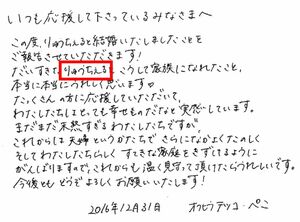 いつも応援して下さっているみなさまへ
この度、りゅうちぇると結婚いたしましたことを
ご報告させていただきます!
だいすきな、りゅうちぇると、こうして家族になれたこと、
本当に本当にうれしく思います♡
たくさんの方に応援していただいて、
わたしたちはとっても幸せものだなと実感しています。
まだまだ未熟すぎるわたしたちですが、
これからは夫婦というかたちで さらになかよくたのしく
そしてわたしたちらしく すてきな家庭をきずけるように
がんばりますので、これからも温く見守って頂けたらうれしいです。
今後とも どうぞよろしくお願いいたします!
2016年12月31日
オクヒラテツコ・ぺこ